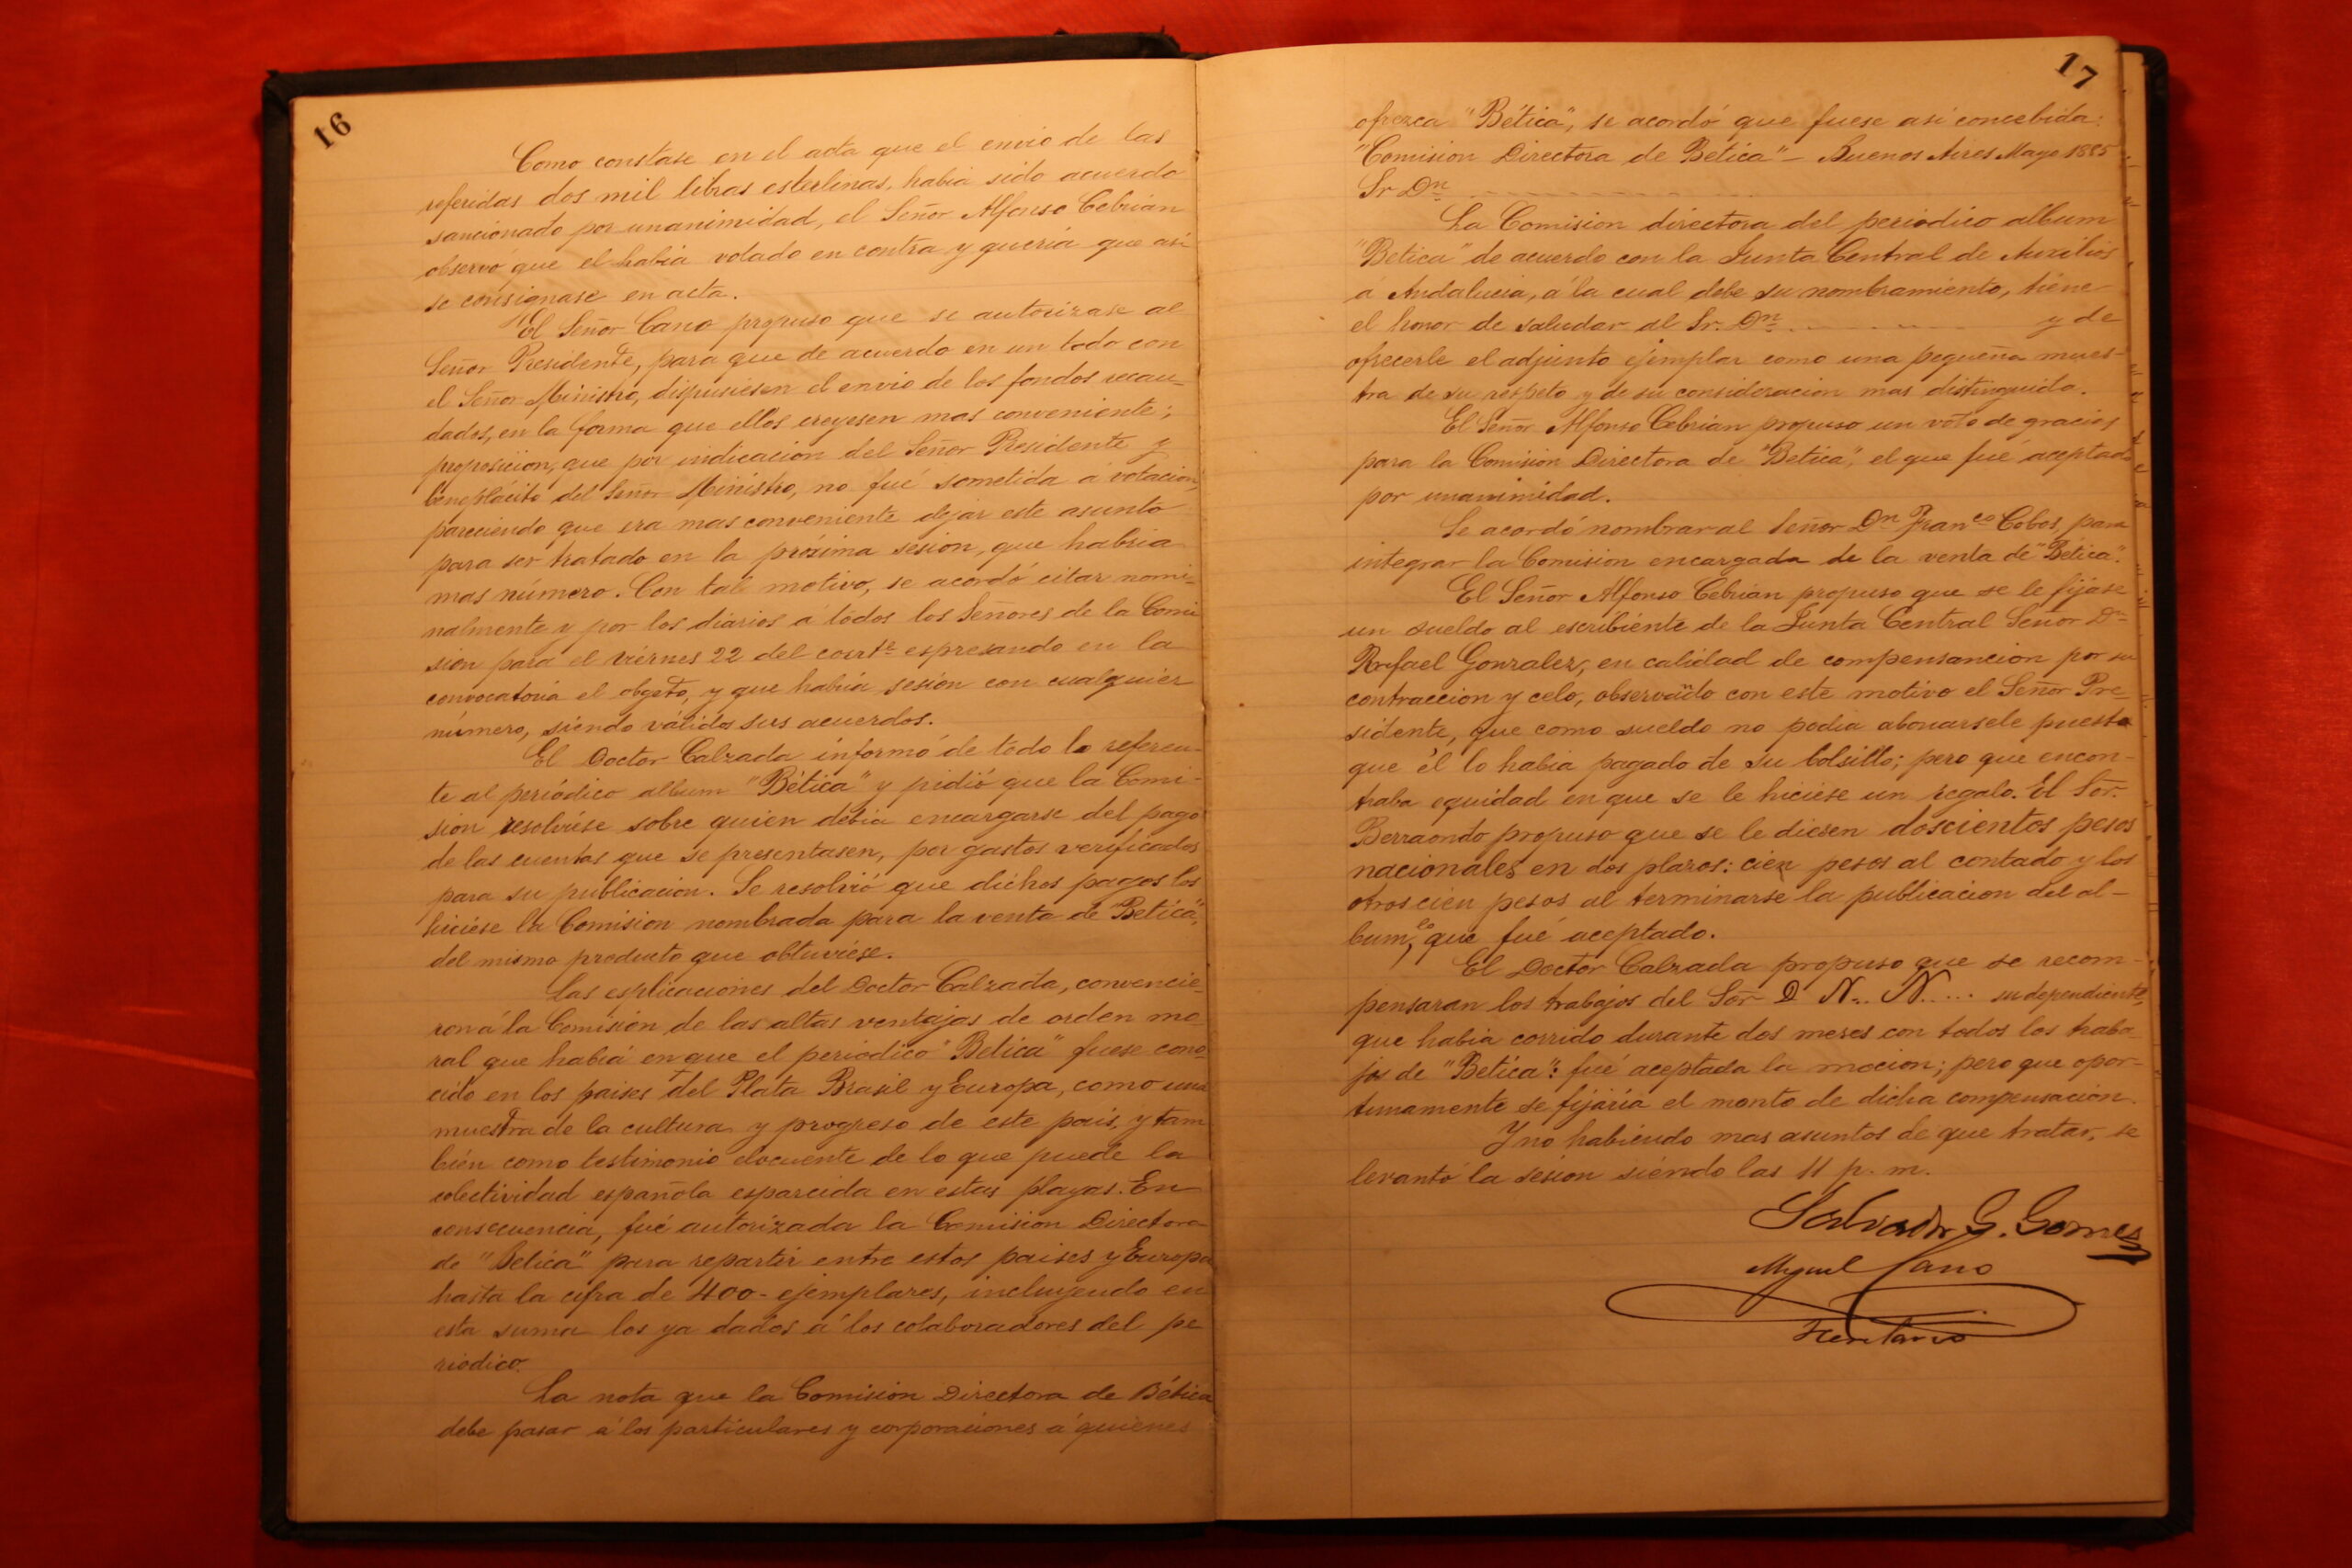 16
Como constase en el acta que el envio de las
referidas dos mil libras esterlinas, habia sido acuerdo
sancionado por unanimidad, el Señor Alfonso Cebrián
observó que el habia votado en contra y queria que asi
se consignase en acta.
El Señor Cano propuso que se autorizase al
Señor Presidente, para que de acuerdo en un todo con
el Señor Ministro, dispusiesen el envio de los fondos recau-
dados, en la forma que ellos creyesen mas conveniente;
proposicion, que por indicacion del Señor Presidente y
beneplácito del Señor Ministro, no fué sometida á votacion,
pareciendo que era mas conveniente dejar este asunto
para ser tratado en la próxima sesion, que habria
mas número. Con tal motivo, se acordó citar nomi-
nalmente y por los diarios á todos los Señores de la Comi
sion para el viérnes 22 del corrte espresando en la
convocatoria el obgeto, y que habria sesión con cualquier
número, siendo válidos sus acuerdos.
El Doctor Calzada informó de todo lo referen-
te al periódico album "Bética" y pidió que la Comi-
sion resolviése sobre quien debia encargarse del pago
de las cuentas que se presentasen, por gastos verificados
para su publicacion. Se resolvió que dichos pagos los
hiciése la Comision nombrada para la venta de "Betica",
del mismo producto que obtuviése.
Las esplicaciones del Doctor Calzada, convencie-
ron á la Comisión de las altas ventajas de orden mo-
ral que habia en que el periodico "Betica" fuese cono-
cido en los paises del Plata Brasil y Europa, como una
muestra de la cultura y progreso de este pais, y tam
bién como testimonio elocuente de lo que puede la
colectividad española esparcida en estas playas. En
consecuencia, fué autorizada la Comision Directora
de "Betica" para repartir entre estos paises y Europa
hasta la cifra de 400- ejemplares, incluyendo en
esta suma los ya dados á los colaboradores del pe
riódico.
La nota que la Comisión Directora de Bética
debe pasar á los particulares y corporaciones á quienes
17
ofrezca "Bética", se acordó que fuese asi concebida:
"Comision Directora de Betica" - Buenos Aires Mayo 1885
Sr Dn
La Comision directora del periodico album
"Betica" de acuerdo con la Junta Central de Auxilios
á Andalucia, á la cual debe su nombramiento, tiéne
el honor de saludar al Sr. Dn. y de
ofrecerle el adjunto ejemplar como una pequeña mues-
tra de su respeto y de su consideracion mas distinguida.
El Señor Alfonso Cebrián propuso un voto de gracias
para la Comision Directora de "Betica", el que fué aceptado
por unanimidad.
Se acordó nombrar al Señor Dn Franco Cobos, para
integrar la Comision encargada de la venta de "Bética".
El Señor Alfonso Cebrián propuso que se le fijáse
un sueldo al escribiénte de la Junta Central Señor Dn
Rafael Gonzalez, en calidad de compensancion por su
contraccion y celo, observando con este motivo el Señor Pre
sidente, que como sueldo no podia abonarsele puesto
que él lo habia pagado de su bolsillo; pero que encon-
traba equidad en que se le hiciése un regalo. El Sor.
Berraondo propuso que se le diesen doscientos pesos
nacionales en dos plazos: cien pesos al contado y los
otros cien pesos al terminarse la publicacion del al-
bum, lo que fué aceptado.
El Doctor Calzada propuso que se recom-
pensaran los trabajos del Sor D N.. N..... su dependiente,
que habia corrido durante dos meses con todos los traba-
jos de "Betica": fué aceptada la mocion; pero que opor-
tunamente se fijaria el monto de dicha compensacion.
Y no habiéndo mas asuntos de que tratar, se
levantó la sesion siéndo las 11 p. m.
Salvador G. Gomes
Miguel Cano